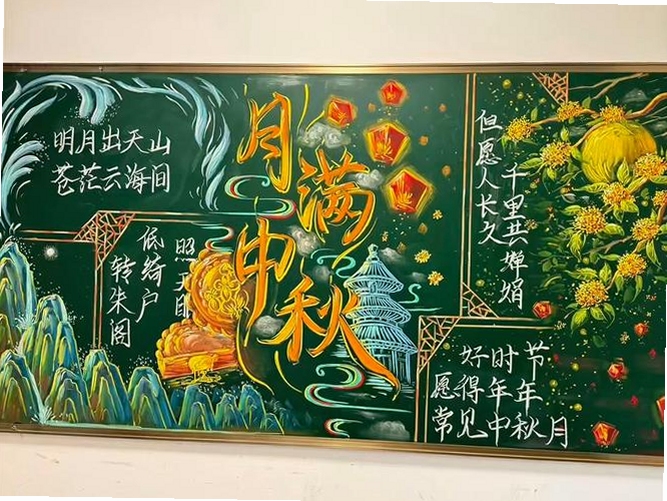 明月出天山
苍茫云海间
月满中秋
转朱阁
低绮户
照无
但愿人长久
千里共婵娟
好时节
愿得年年
常见中秋月